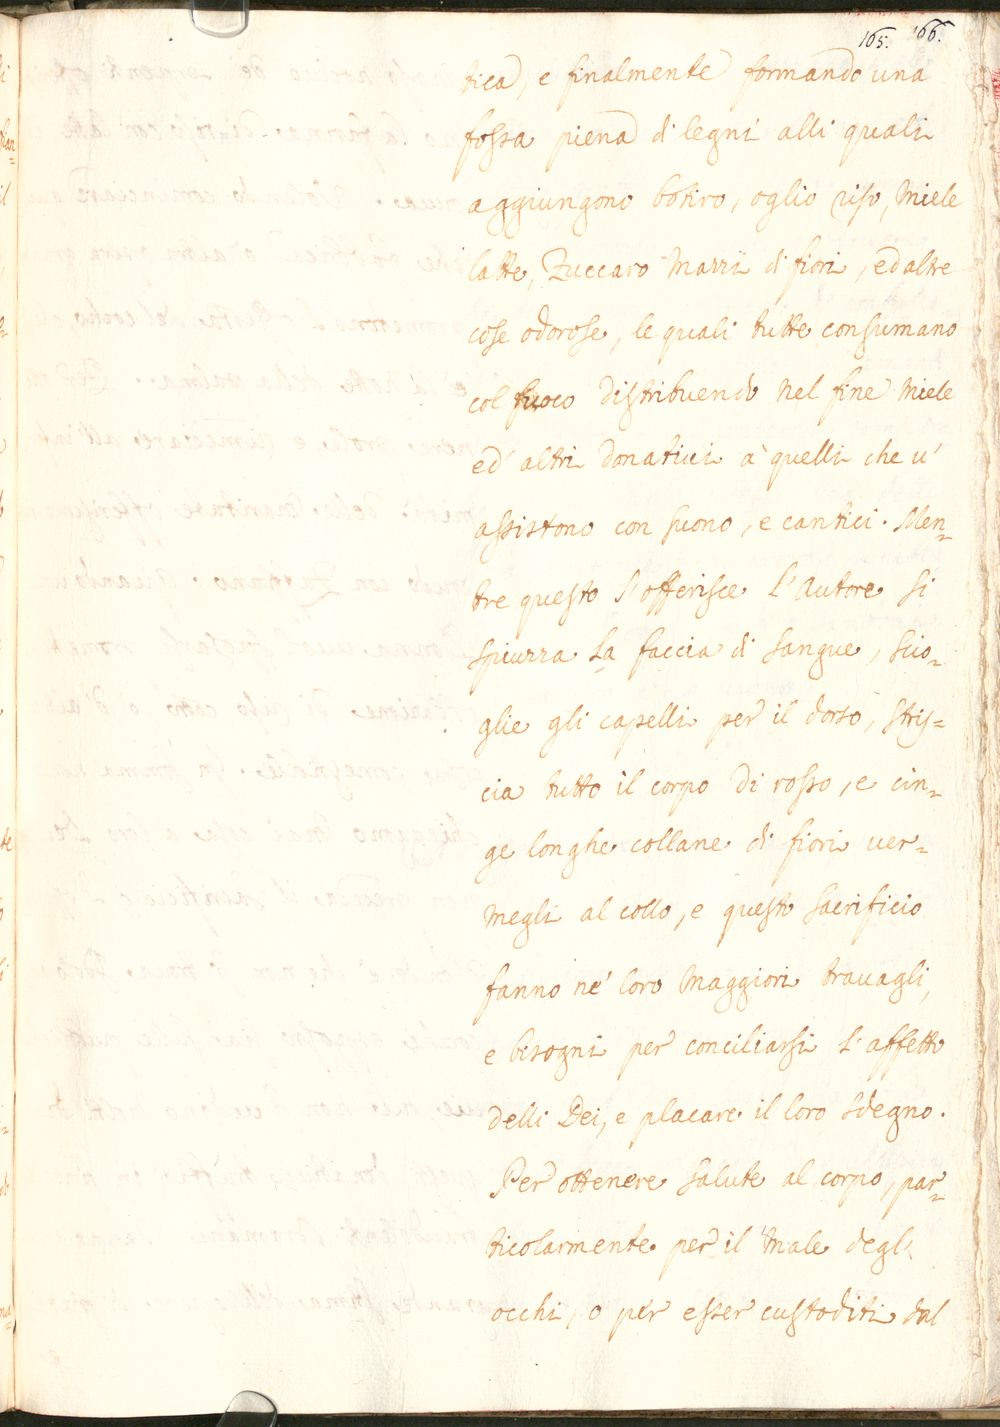 165. 166.
tica, e finalmente formando una
fossa piena di legni alli quali
aggiungono botiro, oglio riso, Miele
latte, Zuccaro Mazzi di fiori, ed altre
cose odorose, le quali tutte consumano
col fuoco distribuendo nel fine Miele
ed' altri donativi a' quelli che u'
assistono con suono, e cantici. Men=
tre questo s'offerisce l'Autore si
spruzza la faccia di sangue, scio=
glie gli capelli per il dorso, stris=
cia tutto il corpo di rosso, e cin=
ge longhe collane di fiori ver=
megli al collo, e questo sacrificio
fanno ne' loro Maggiori travagli,
e bisogni per conciliarsi l'affetto
delli Dei, e placare il loro sdegno.
Per ottenere salute al corpo, par=
ticolarmente per il male degl'
occhi, o per esser custoditi dal